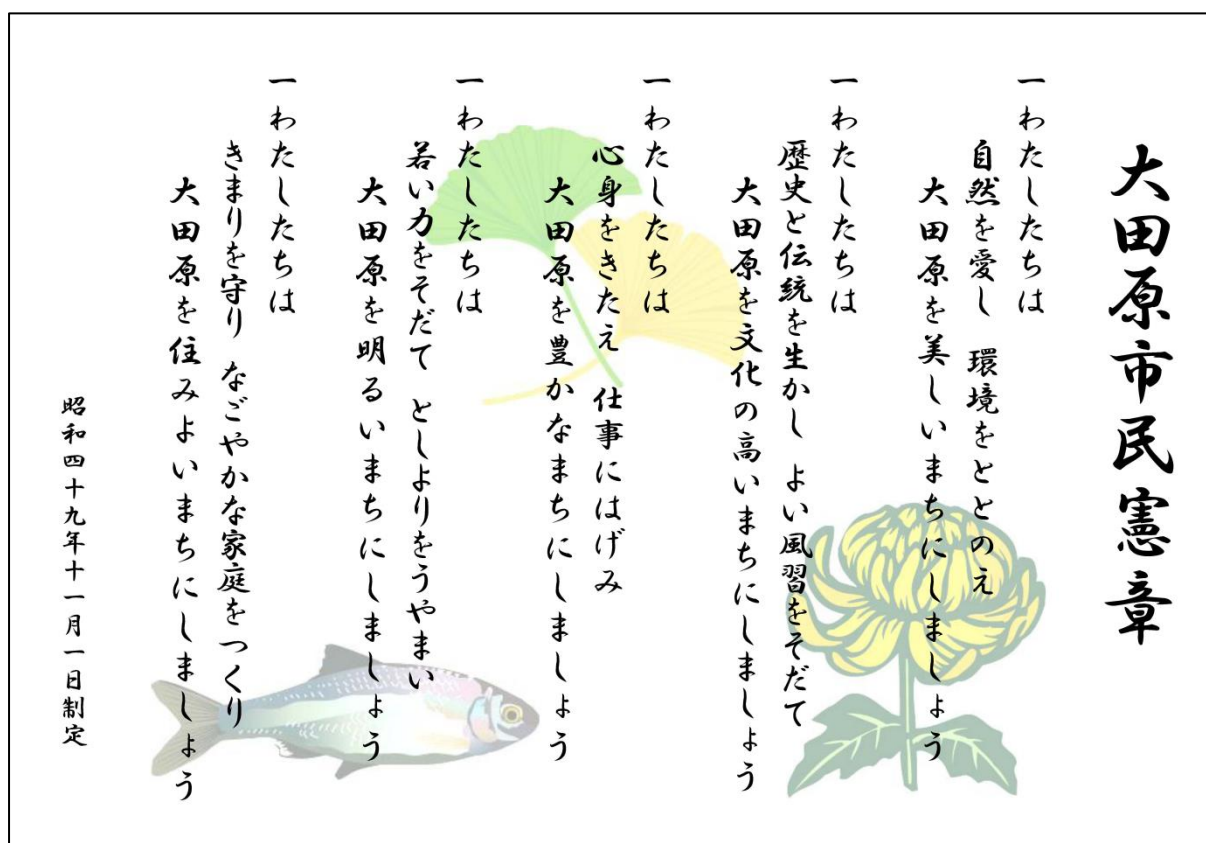 大田原市民憲章
一わたしたちは
自然を愛し　環境をととのえ
大田原を美しいまちにしましょう
一わたしたちは
歴史と伝統を生かし　よい風習をそだて
大田原を文化の高いまちにしましょう
一わたしたちは
心身をきたえ　仕事にはげみ
大田原を豊かなまちにしましょう
一わたしたちは
若い力をそだて　としよりをうやまい
大田原を明るいまちにしましょう
一わたしたちは
きまりを守り　なごやかな家庭をつくり
大田原を住みよいまちにしましょう
昭和四十九年十一月一日制定